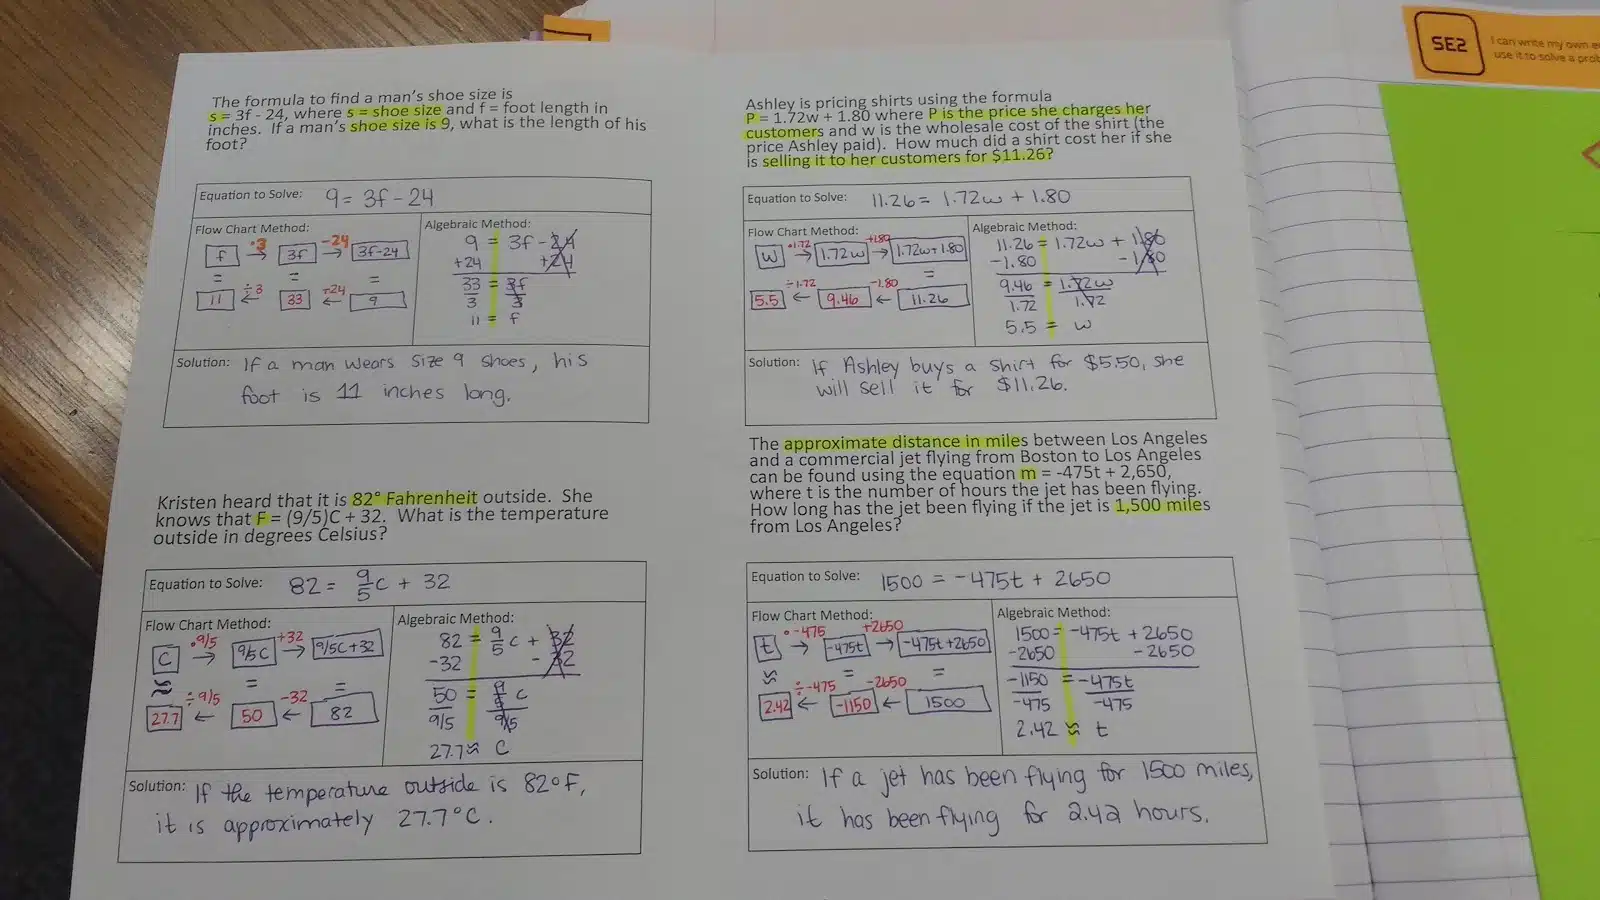 The formula to find a man's shoe size is
s = 3f - 24, where s = shoe size and f = foot length in
inches. If a man's shoe size is 9, what is the length of his
foot?
Equation to Solve: 9 = 3f - 24
Flow Chart Method:
·3 -24
f → 3f → 3f-24
= = =
÷3 +24
11 ← 33 ← 9
Algebraic Method:
9 = 3f - 24
+24 +24
33 = 3f
3 3
11 = f
Solution: If a man wears size 9 shoes, his
foot is 11 inches long.
Ashley is pricing shirts using the formula
P = 1.72w + 1.80 where P is the price she charges her
customers and w is the wholesale cost of the shirt (the
price Ashley paid). How much did a shirt cost her if she
is selling it to her customers for $11.26?
Equation to Solve: 11.26 = 1.72w + 1.80
Flow Chart Method:
·1.72 +1.80
W → 1.72w → 1.72w+1.80
=
÷1.72 -1.80
5.5 ← 9.46 ← 11.26
Algebraic Method:
11.26 = 1.72w + 1.80
-1.80 -1.80
9.46 = 1.72w
1.72 1.72
5.5 = w
Solution: If Ashley buys a shirt for $5.50, she
will sell it for $11.26.
Kristen heard that it is 82° Fahrenheit outside. She
knows that F = (9/5)C + 32. What is the temperature
outside in degrees Celsius?
Equation to Solve: 82 = 9/5 C + 32
Flow Chart Method:
·9/5 +32
C → 9/5C → 9/5C+32
≈ = =
÷9/5 -32
27.7 ← 50 ← 82
Algebraic Method:
82 = 9/5 C + 32
-32 - 32
50 = 9/5 C
9/5 9/5
27.7 ≈ C
Solution: If the temperature outside is 82°F,
it is approximately 27.7°C.
The approximate distance in miles between Los Angeles
and a commercial jet flying from Boston to Los Angeles
can be found using the equation m = -475t + 2,650,
where t is the number of hours the jet has been flying.
How long has the jet been flying if the jet is 1,500 miles
from Los Angeles?
Equation to Solve: 1500 = -475t + 2650
Flow Chart Method:
·-475 +2650
t → -475t → -475t+2650
≈ = =
÷-475 -2650
2.42 ← -1150 ← 1500
Algebraic Method:
1500 = -475t + 2650
-2650 -2650
-1150 = -475t
-475 -475
2.42 ≈ t
Solution: If a jet has been flying for 1500 miles,
it has been flying for 2.42 hours.
SE2
I can write my own
use it to solve a